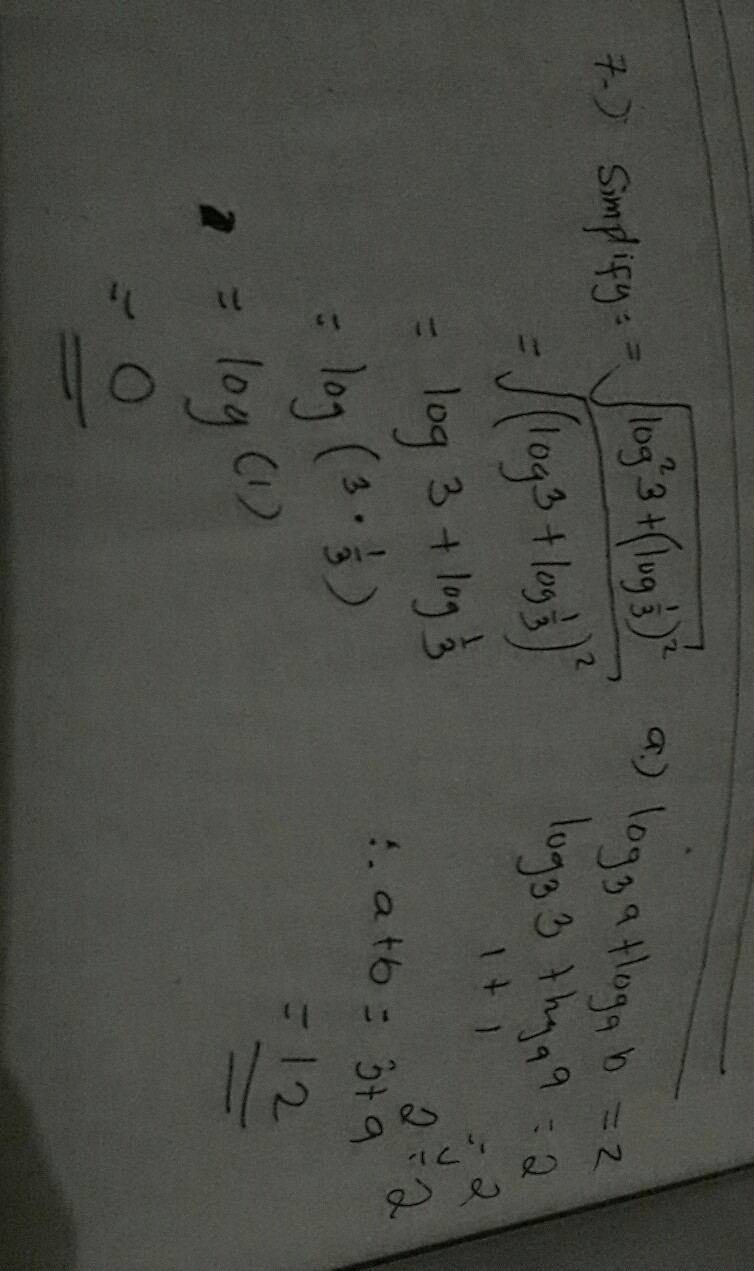 7.) Simplify: = √(log²3 + (log 1/3)²)
= √((log 3 + log 1/3)²)
= log 3 + log 1/3
= log (3 · 1/3)
= log (1)
= 0
a.) log₃ a + log₉ b = 2
log₃ 3 + log₉ 9 = 2
1 + 1 = 2
2 = 2
∴ a+b = 3+9
= 12